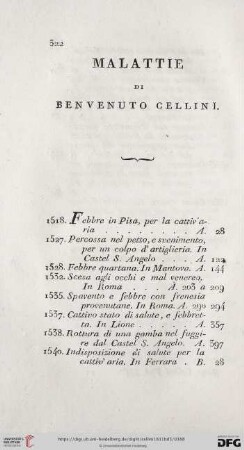 522
MALATTIE
DI
BENVENUTO CELLINI.
1518. Febbre in Pisa, per la cattiv'a-
ria . . . . . . . . A. 28
1527. Percossa nel petto, e svenimento,
per un colpo d'artiglieria. In
Castel S. Angelo . . . . A. 122
1528. Febbre quartana. In Mantova. A. 144
1532. Scesa agli occhi e mal venereo.
In Roma . . . A. 203 a 209
1535. Spavento e febbre con frenesia
procenutane. Roma. A. 290 294
1537. Cattivo stato di salute, e febbret-
ta. In Lione . . . . A. 357
1538. Rottura di una gamba nel fuggi-
re dal Castel S. Angelo. A. 397
1540. Indisposizione di salute per la
cattiv'aria. In Ferrara . B. 28